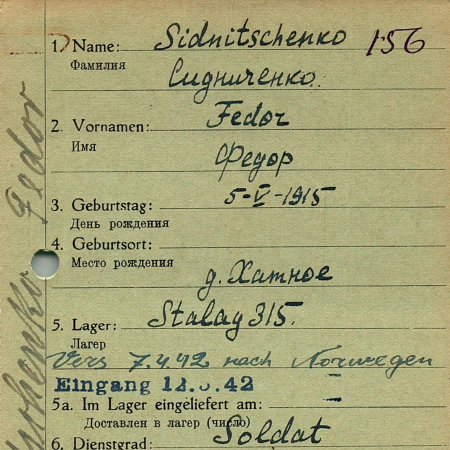 1. Name: Sidnitschenko 156
Фамилия
Сидниченко.
2. Vornamen: Fedor
Имя
Федор
3. Geburtstag: 5-V-1915
День рождения
4. Geburtsort:
Место рождения
д. Хатное
5. Lager: Stalag 315.
Лагерь
Vers 7.4.42 nach Norwegen
Eingang 12.5.42
5a. Im Lager eingeliefert am: -
Доставлен в лагерь (число) -
6. Dienstgrad: Soldat
Fedor